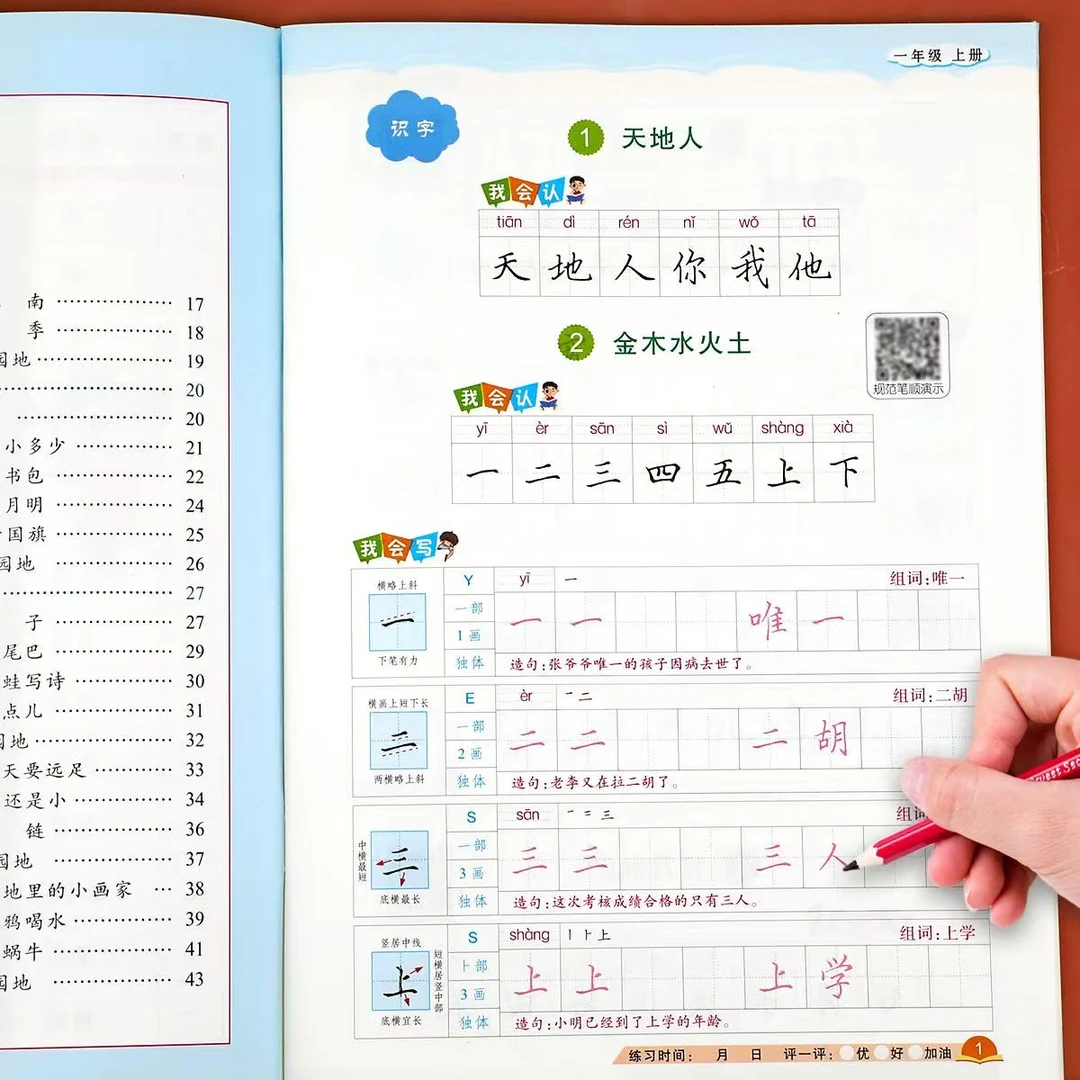 南 17
季 18
园地 19
20
20
小多少 21
书包 22
月明 24
国旗 25
园地 26
27
子 27
尾巴 29
蛙写诗 30
点儿 31
园地 32
天要远足 33
还是小 34
链 36
园地 37
地里的小画家 38
鸦喝水 39
蜗牛 41
园地 43
一年级 上册
识字
1 天地人
我会认
tiān dì rén nǐ wǒ tā
天 地 人 你 我 他
2 金木水火土
规范笔顺演示
我会认
yī èr sān sì wǔ shàng xià
一 二 三 四 五 上 下
我会写
横略上斜
一
下笔有力
Y yī 一 组词:唯一
一部
1画
独体
一 一 唯 一
造句:张爷爷唯一的孩子因病去世了。
横画上短下长
二
两横略上斜
E èr 一 二 组词:二胡
一部
2画
独体
二 二 二 胡
造句:老李又在拉二胡了。
中横最短
三
底横最长
S sān 一 二 三 组词
一部
3画
独体
三 三 三 人
造句:这次考核成绩合格的只有三人。
竖居中线
短横居竖中部
上
底横宜长
S shàng 丨 ⺊ 上 组词:上学
⺊部
3画
独体
上 上 上 学
造句:小明已经到了上学的年龄。
练习时间: 月 日 评一评: 优 好 加油 1